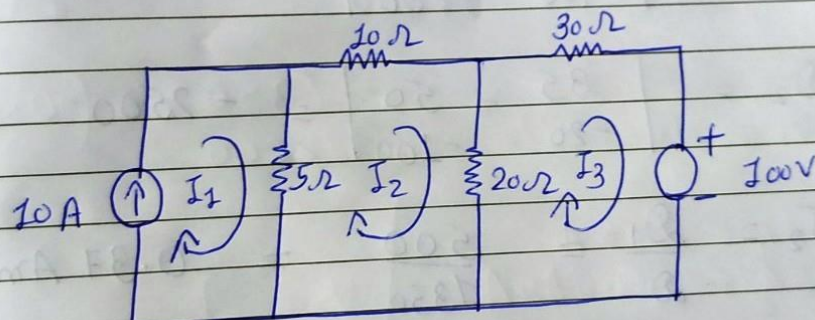 10Ω
30Ω
10A
I1
5Ω
I2
20Ω
I3
+
-
100V